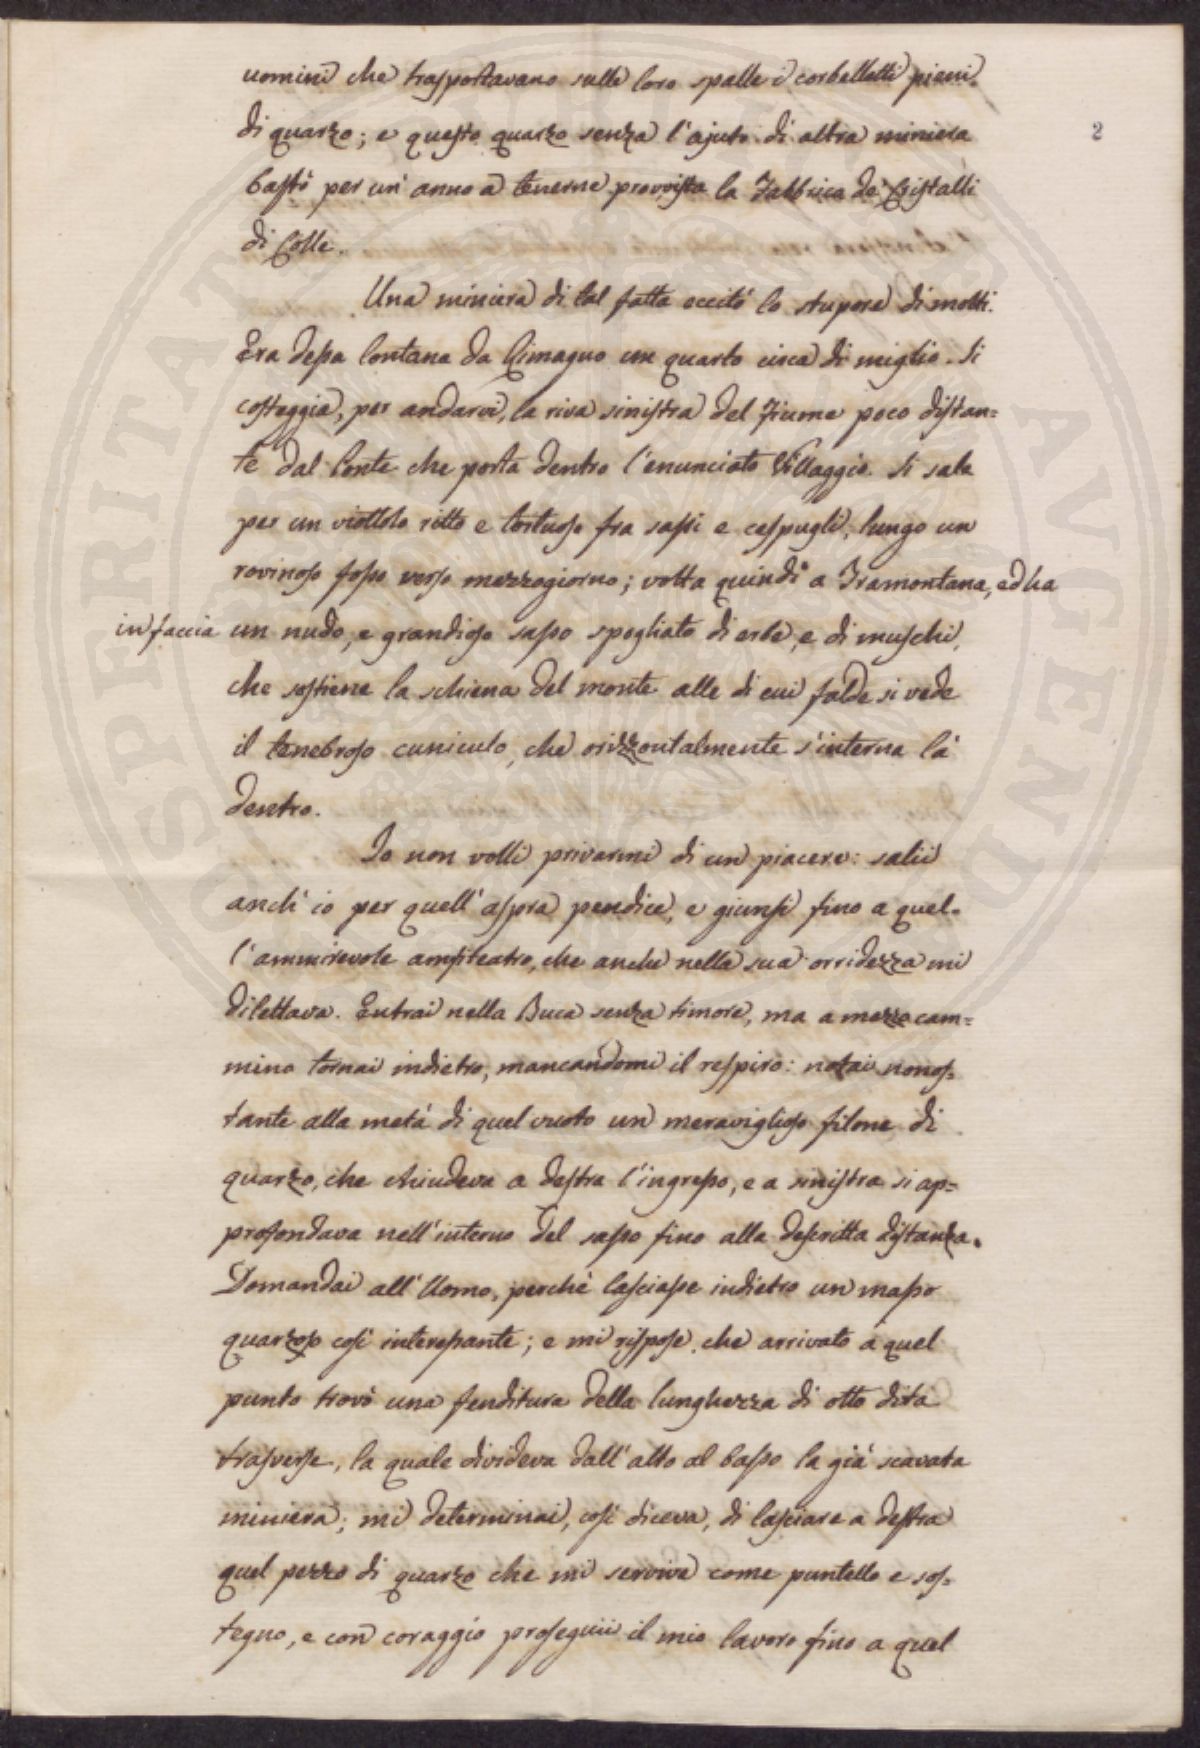 uomini che trasportavano sulle loro spalle i corbelletti pieni
2
di quarzo; e questo quarzo senza l'ajuto di altra miniera
bastò per un' anno a tenerne provvista la Fabbrica de' Cristalli
di Colle.
Una miniera di tal fatta eccitò lo stupore di molti.
Era dessa lontana da Rimagno un quarto circa di miglio. Si
costeggia, per andarvi, la riva sinistra del Fiume poco distan=
te dal Ponte che porta dentro l'enunciato Villaggio. Si sale
per un viottolo ritto e tortuoso fra sassi e cespugli, lungo un
rovinoso fosso verso mezzogiorno; volta quindi a Tramontana, ed ha
in faccia un nudo, e grandioso sasso spogliato di erbe, e di muschi,
che sostiene la schiena del monte alle di cui falde si vede
il tenebroso cuniculo, che orizzontalmente s'interna là
dentro.
Io non volli privarmi di un piacere: salii
anch' io per quell' aspra pendice, e giunsi fino a quel=
l'ammirevole anfiteatro, che anche nella sua orridezza mi
dilettava. Entrai nella Buca senza timore, ma a mezzo cam=
mino tornai indietro, mancandomi il respiro: notai nonos=
tante alla metà di quel vuoto un meraviglioso filone di
quarzo, che chiudeva a destra l'ingresso, e a sinistra si ap=
profondava nell'interno del sasso fino alla descritta distanza.
Domandai all' Uomo, perchè lasciasse indietro un masso
quarzoso così interessante; e mi rispose che arrivato a quel
punto trovò una fenditura della lunghezza di otto dita
trasverse, la quale divideva dall' alto al basso la già scavata
miniera; mi determinai, così diceva, di lasciare a destra
quel pezzo di quarzo che mi serviva come puntello e sos=
tegno, e con coraggio proseguii il mio lavoro fino a quel
SPERITAT AVGENDO